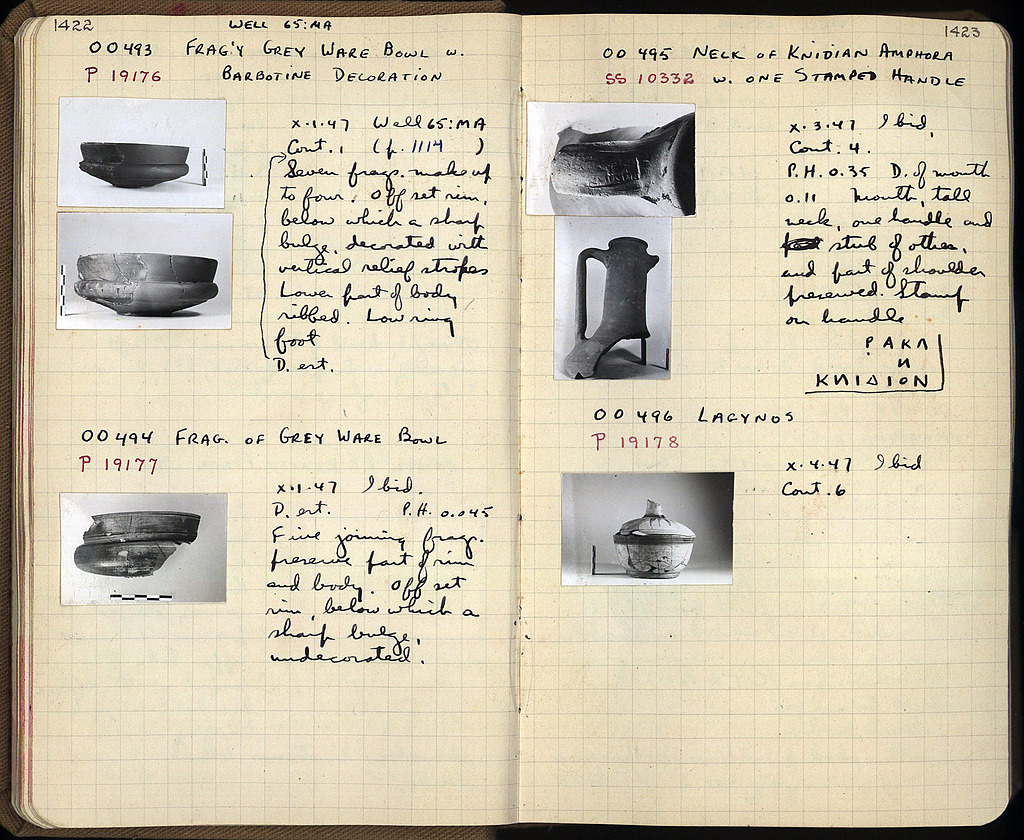 1422
WELL 65:MA
OO 493 FRAG'Y GREY WARE BOWL W.
P 19176 BARBOTINE DECORATION
X.1.47 Well 65:MA
Cont. 1 (p. 1114 )
Seven frags. make up
to four. Off set rim,
below which a sharp
bulge, decorated with
vertical relief stropes
Lower part of body
ribbed. Low ring
foot
D. est.
OO 494 FRAG. OF GREY WARE BOWL
P 19177
X.1.47 Ibid.
D. est. P.H. 0.045
Five joining frags.
preserve part of rim
and body. Off set
rim, below which a
sharp bulge,
undecorated.
1423
OO 495 NECK OF KNIDIAN AMPHORA
SS 10332 W. ONE STAMPED HANDLE
X.3.47 Ibid,
Cont. 4.
P.H. 0.35 D. of mouth
0.11 Mouth, tall
neck, one handle and
stub of other,
and part of shoulder
preserved. Stamp
on handle
ΡΑΚΛ
И
ΚИΙΔΙΟΝ
OO 496 LAGYNOS
P 19178
X.4.47 Ibid
Cont. 6